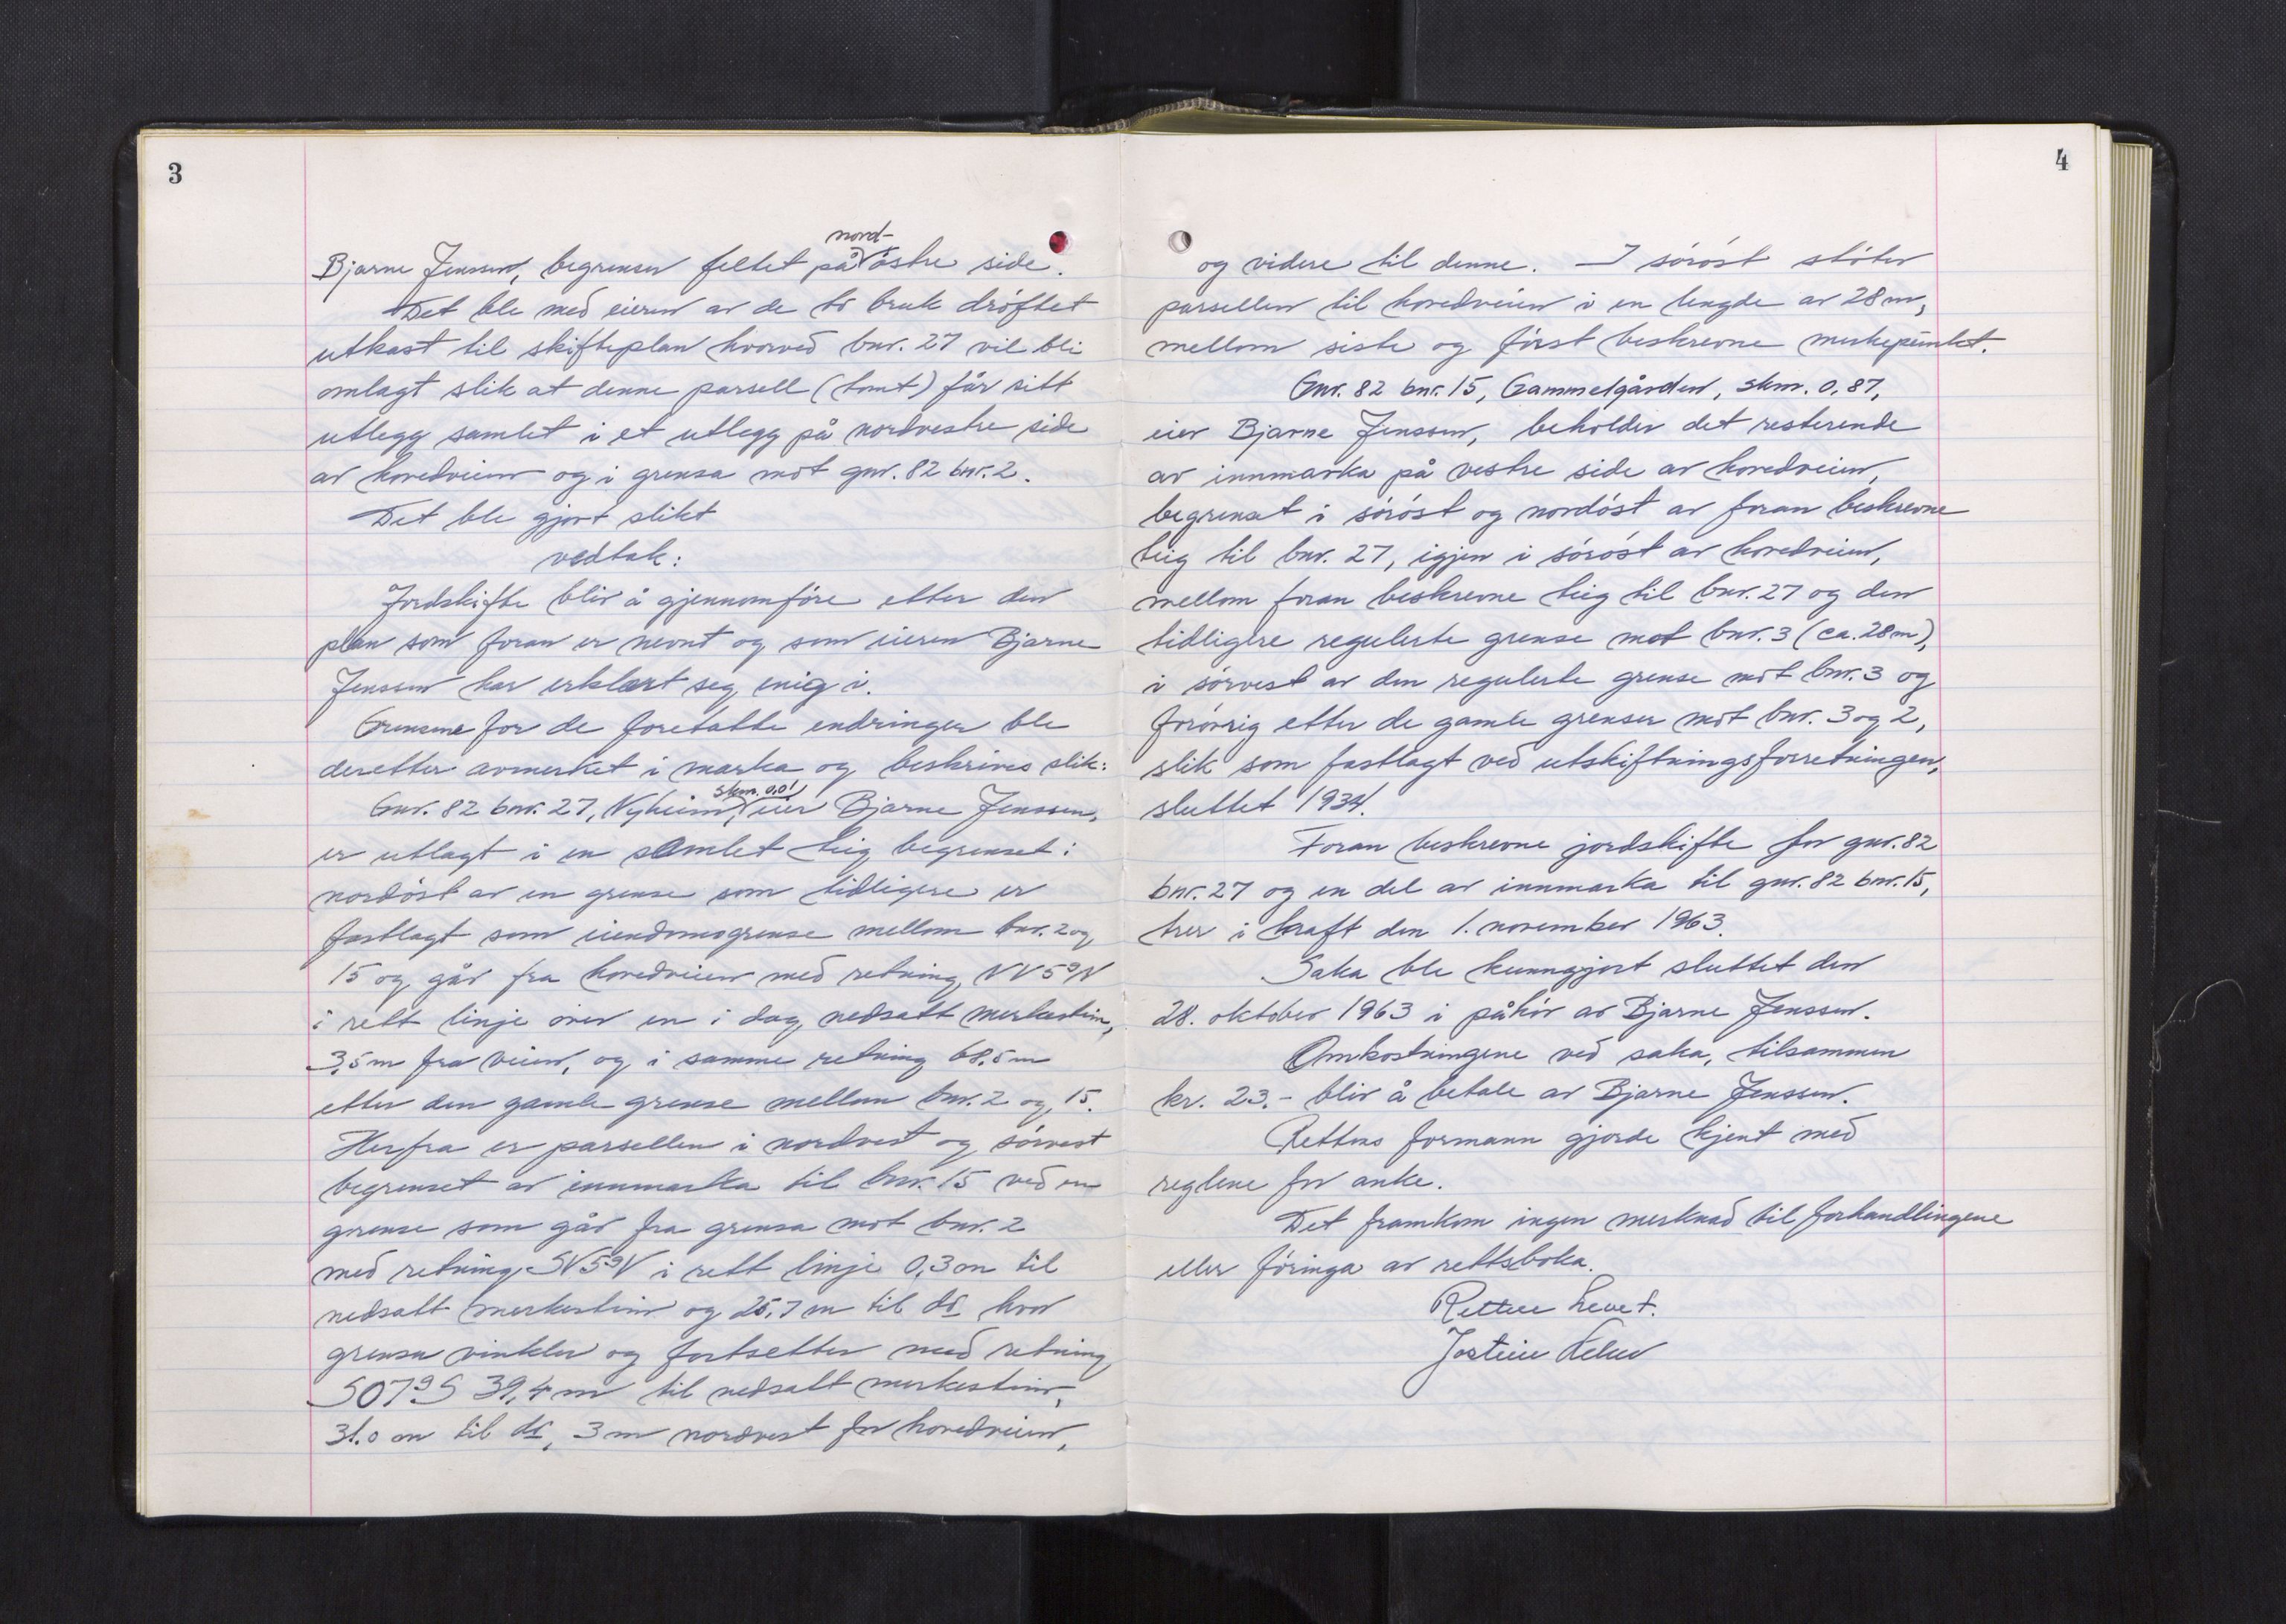 3
Bjarne Jenssen, begrenser feltet på nord-østre side.
Det ble med eieren av de to bruk drøftet
utkast til skifteplan hvorved bnr. 27 vil bli
omlagt slik at denne parsell (tomt) får sitt
utlegg samlet i et utlegg på nordvestre side
av hovedveien og i grensa mot gnr. 82 bnr. 2.
Det ble gjort slikt
vedtak:
Jordskifte blir å gjennomføre etter den
plan som foran er nevnt og som eieren Bjarne
Jenssen har erklært seg enig i.
Grensene for de foretatte endringer ble
deretter avmerket i marka og beskrives slik:
Gnr. 82 bnr. 27, Nyheim, skm. 0,01 eier Bjarne Jenssen,
er utlagt i en samlet teig begrenset:
nordøst av en grense som tidligere er
fastlagt som eiendomsgrense mellom bnr. 2 og
15 og går fra hovedveien med retning NV5°N
i rett linje over en i dag nedsatt merkestein,
3,5 m fra veien, og i samme retning 68,5 m
etter den gamle grense mellom bnr. 2 og 15.
Herfra er parsellen i nordvest og sørvest
begrenset av innmarka til bnr. 15 ved en
grense som går fra grensa mot bnr. 2
med retning SV5°V i rett linje 0,3 m til
nedsatt merkestein og 25,7 m til do hvor
grensa vinkler og fortsetter med retning
SO7°S 39,4 m til nedsatt merkestein,
31.0 m til do, 3 m nordvest for hovedveien,
4
og videre til denne. I sørøst støter
parsellen til hovedveien i en lengde av 28 m,
mellom siste og først beskrevne merkepunkt.
Gnr. 82 bnr. 15, Gammelgården, skm. 0,87,
eier Bjarne Jenssen, beholder det resterende
av innmarka på vestre side av hovedveien,
begrenset i sørøst og nordøst av foran beskrevne
teig til bnr. 27, igjen i sørøst av hovedveien,
mellom foran beskrevne teig til bnr. 27 og den
tidligere regulerte grense mot bnr. 3 (ca. 28 m),
i sørvest av den regulerte grense mot bnr. 3 og
forøvrig etter de gamle grenser mot bnr. 3 og 2,
slik som fastlagt ved utskiftningsforretningen,
sluttet 1934.
Foran beskrevne jordskifte for gnr. 82
bnr. 27 og en del av innmarka til gnr. 82 bnr. 15,
trer i kraft den 1. november 1963.
Saka ble kunngjort sluttet den
28. oktober 1963 i påhør av Bjarne Jenssen.
Omkostningene ved saka, tilsammen
kr. 23.- blir å betale av Bjarne Jenssen.
Rettens formann gjorde kjent med
reglene for anke.
Det framkom ingen merknad til forhandlingene
eller føringa av rettsboka.
Retten hevet.
Jostein